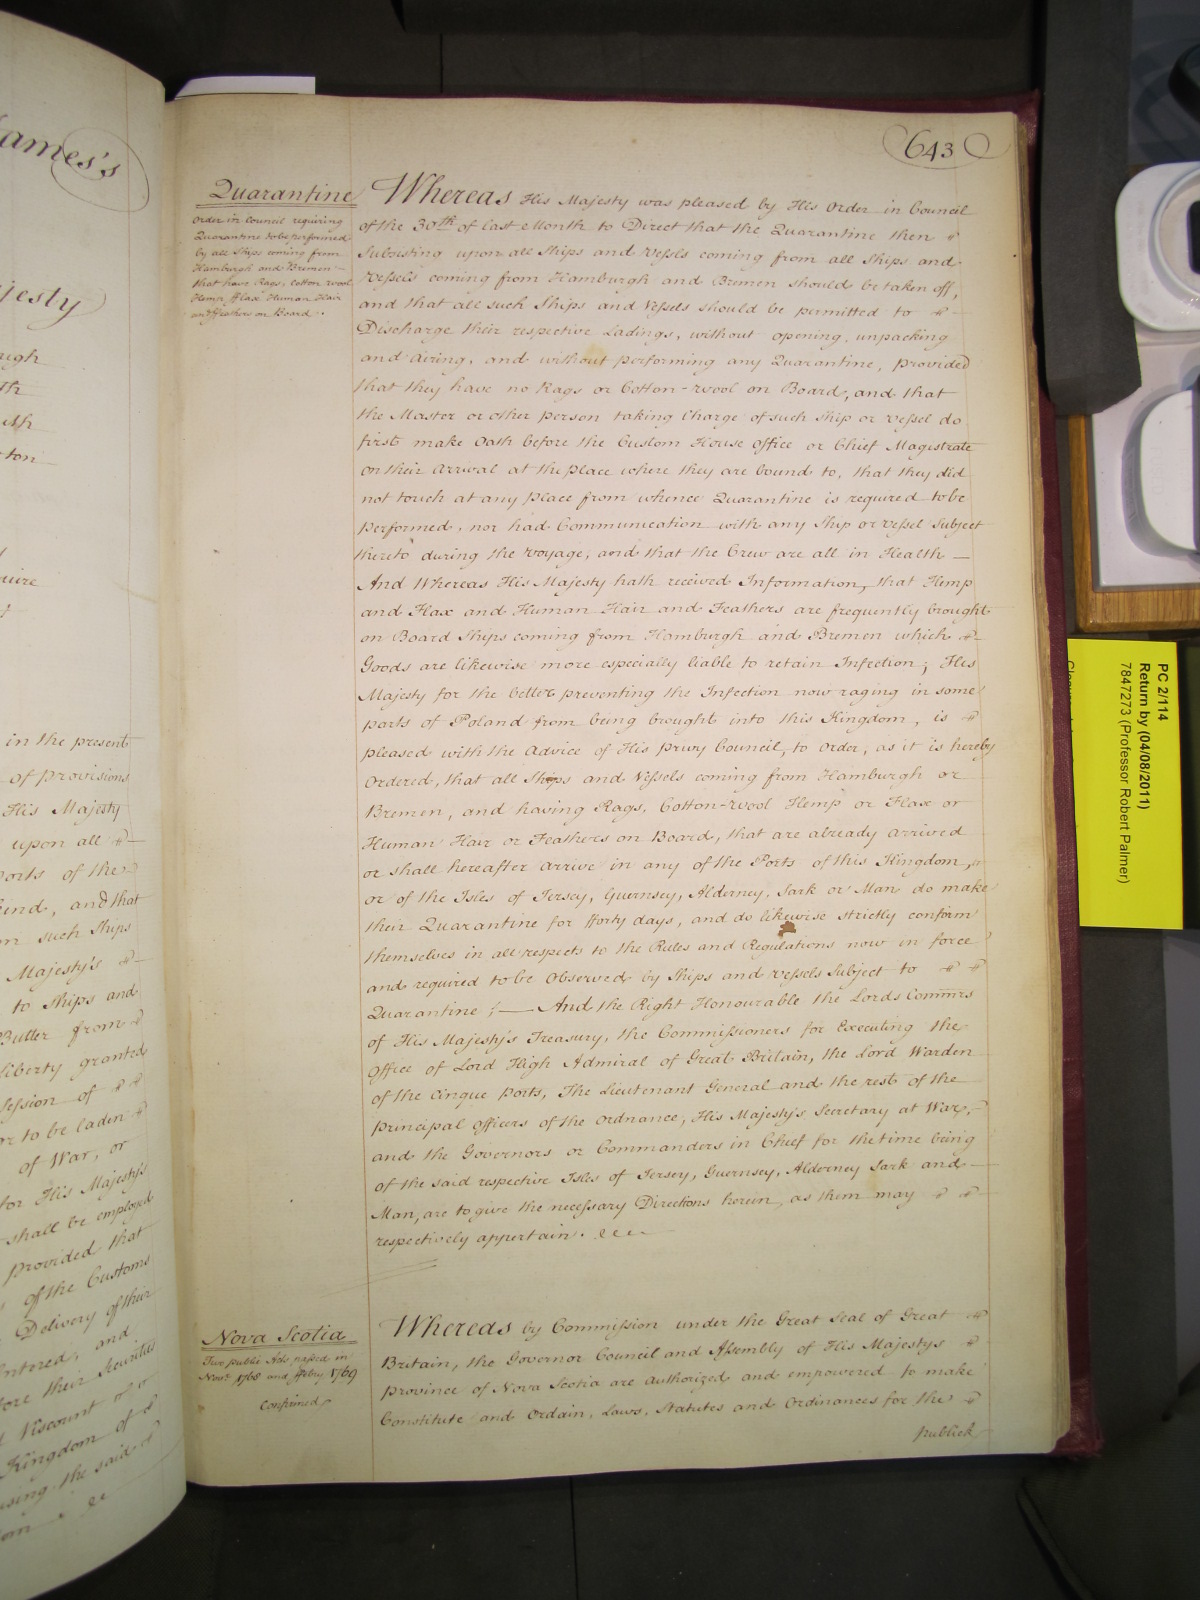 ames's
jesty
ugh
th
uth
ton
uire
in the present
of provisions
His Majesty
upon all
orts of the
kind, and that
m such Ships
Majesty's
to Ships and
Butter from
liberty granted
Session of
or to be laden
of War, or
for His Majesty's
shall be employed
provided that
of the Customs
Delivery of their
Entered, and
fore their Securities
Viscount
Kingdom of
using the said
643
Quarantine
Order in Council requiring
Quarantine to be performed
by all Ships coming from
Hamburgh and Bremen
that have Rags, Cotton wool
Hemp, fflax Human Hair
and ffeathers on Board.
Whereas His Majesty was pleased by His Order in Council
of the 30th of last Month to Direct that the Quarantine then
Subsisting upon all Ships and Vessels coming from all Ships and
Vessels coming from Hamburgh and Bremen should be taken off,
and that all such Ships and Vessels should be permitted to
Discharge their respective Ladings, without opening, unpacking
and airing, and without performing any Quarantine, provided
that they have no Rags or Cotton-wool on Board, and that
the Master or other person taking Charge of such Ship or Vessel do
first make Oath before the Custom House Office or Chief Magistrate
on their Arrival at the place where they are bound to, that they did
not touch at any Place from whence Quarantine is required to be
performed, nor had Communication with any Ship or Vessel Subject
thereto during the Voyage, and that the Crew are all in Health —
And Whereas His Majesty hath received Information, that Hemp
and Flax and Human Hair and Feathers are frequently brought
on Board Ships coming from Hamburgh and Bremen which
Goods are likewise more especially liable to retain Infection; His
Majesty for the better preventing the Infection now raging in some
ports of Poland from being brought into this Kingdom, is
pleased with the Advice of His privy Council, to order, as it is hereby
Ordered, that all Ships and Vessels coming from Hamburgh or
Bremen, and having Rags, Cotton-wool Hemp or Flax or
Human Hair or Feathers on Board, that are already arrived
or shall hereafter arrive in any of the Ports of this Kingdom,
or of the Isles of Jersey, Guernsey, Alderney, Sark or Man do make
their Quarantine for fforty days, and do likewise strictly conform
themselves in all respects to the Rules and Regulations now in force
and required to be Observed by Ships and Vessels Subject to
Quarantine; — And the Right Honourable the Lords Commrs
of His Majesty's Treasury, the Commissioners for Executing the
Office of Lord High Admiral of Great Britain, the Lord Warden
of the Cinque Ports, The Lieutenant General and the rest of the
principal Officers of the Ordnance, His Majesty's Secretary at War,
and the Governors or Commanders in Chief for the time being
of the said respective Isles of Jersey, Guernsey, Alderney Sark and
Man, are to give the necessary Directions herein, as them may
respectively appertain.
Nova Scotia
Two public Acts, passed in
Novr. 1768 and ffebry 1769
Confirmed
Whereas by Commission under the Great Seal of Great
Britain, the Governor Council and Assembly of His Majesty's
province of Nova Scotia are authorized and empowered to make
Constitute and Ordain, Laws, Statutes and Ordinances for the
publick
PC 2/114
Return by (04/08/2011)
7847273 (Professor Robert Palmer)